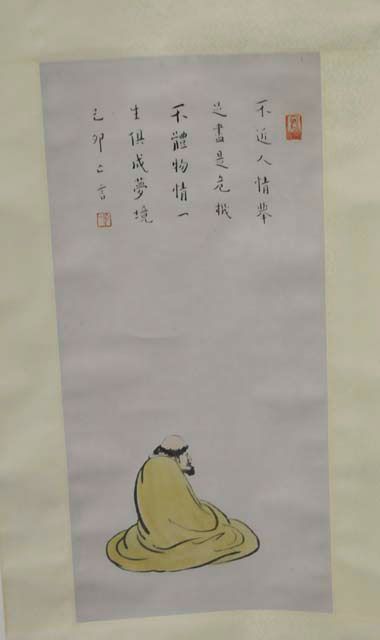 不近人情舉
足盡是危機
不體物情一
生俱成夢境
己卯亡言